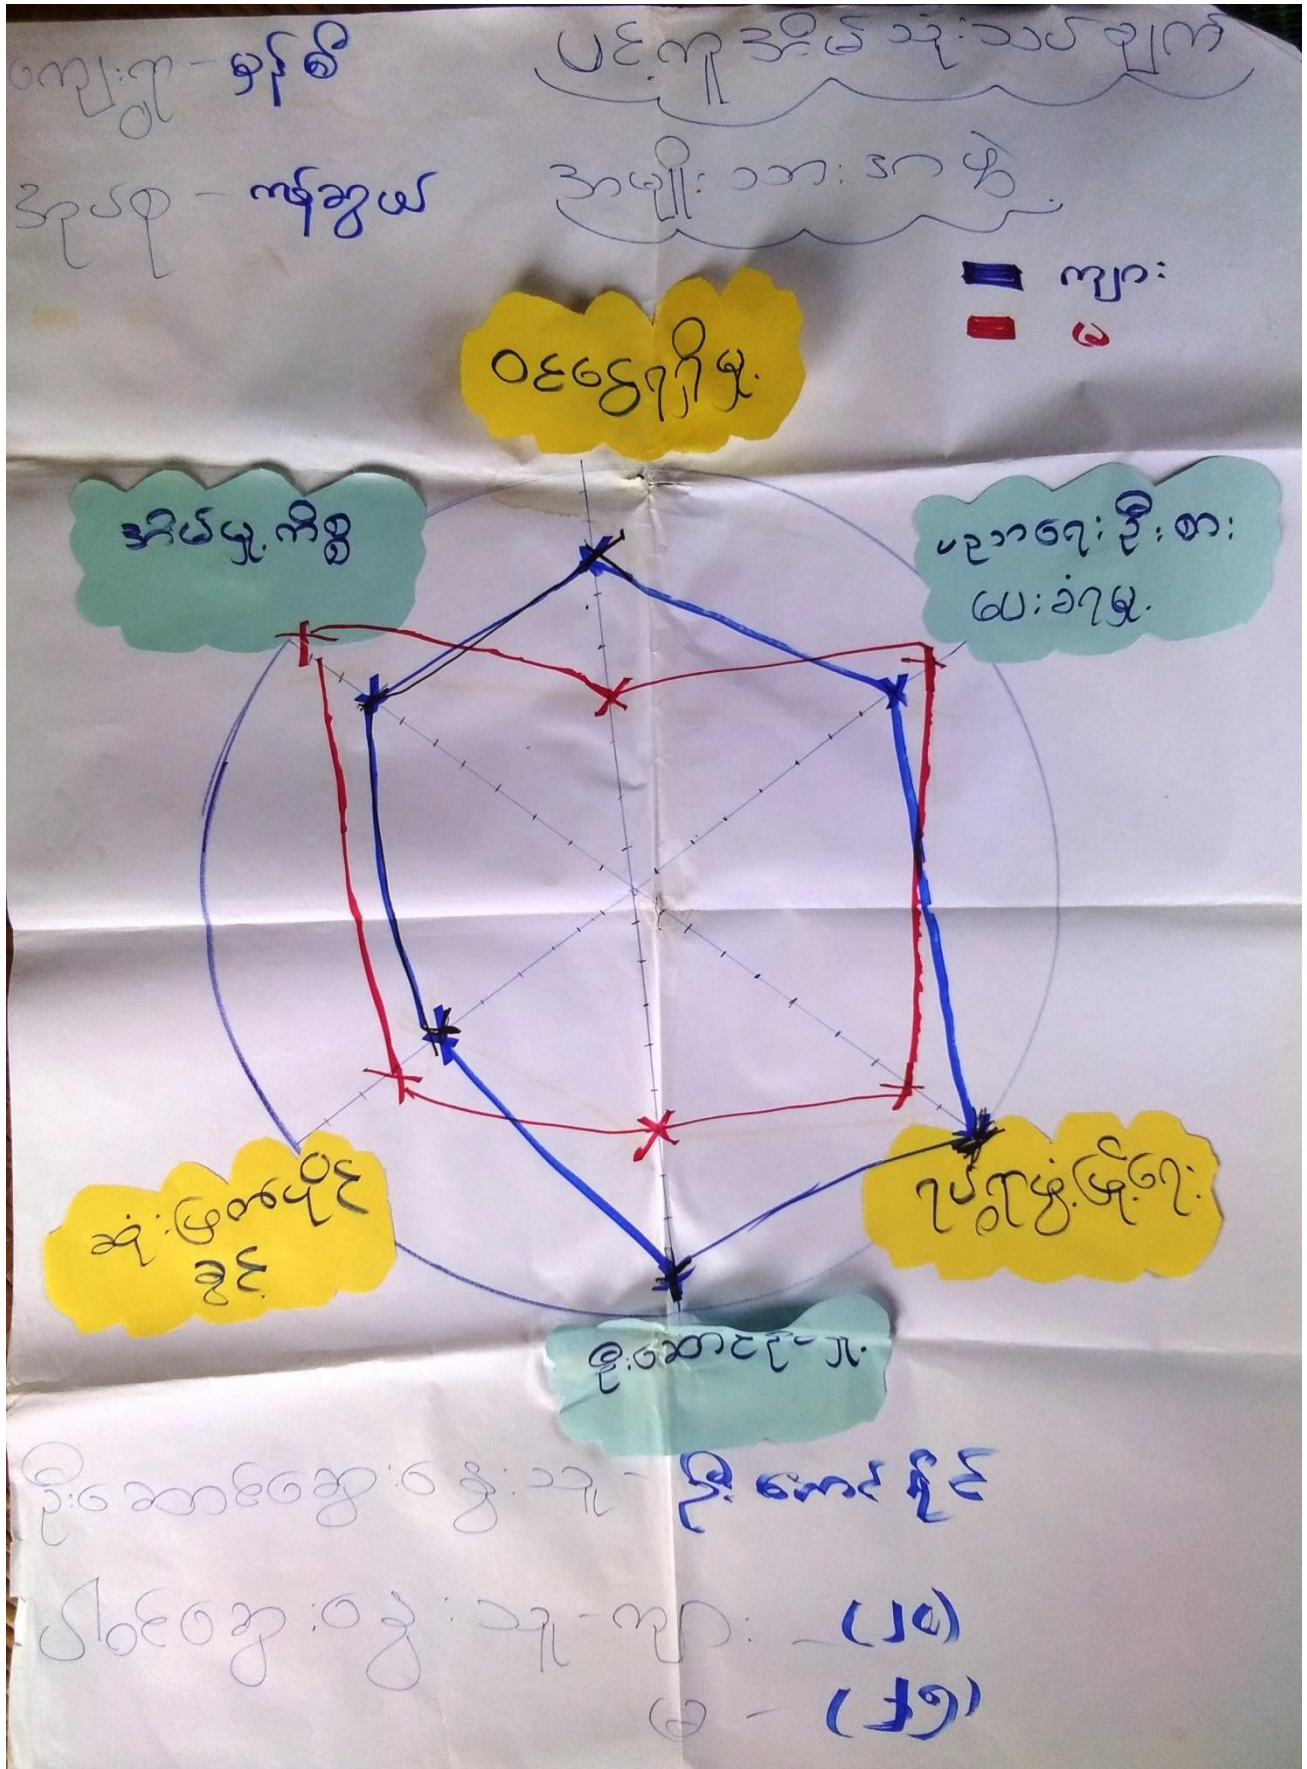 ကျေးရွာ - မှန်စီ
ပင့်ကူအိမ်သုံးသပ်ချက်
အုပ်စု - ကန်ဆွယ်
အမျိုးသား၊ အကွဲ
ကျား
မ
ဝင်ငွေရရှိမှု
အိမ်မှုကိစ္စ
ပညာရေးဦးစား
ပေးခံရမှု
ဆုံးဖြတ်ပိုင်
ခွင့်
ရပ်ရွာဖွံ့ဖြိုးရေး
ဦးဆောင်
ဦးဆောင်ဆွေးနွေးသူ - ဦးအောင်နိုင်
ပါဝင်ဆွေးနွေးသူ - ကျား -
မ -